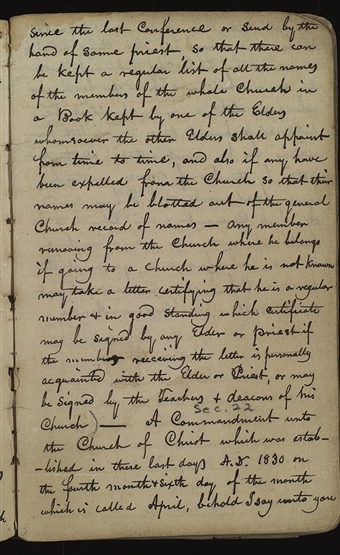 since the last Conference or send by the
hand of some priest so that there can
be kept a regular list of all the names
of the members of the whole Church in
a Book kept by one of the Elders
whomsoever the other Elders shall appoint
from time to time, and also if any have
been expelled from the Church so that their
names may be blotted out of the general
Church record of names — any member
removing from the Church where he belongs
if going to a Church where he is not known
may take a letter certifying that he is a regular
member & in good standing which certificate
may be signed by any Elder or priest if
the member receiving the letter is personally
acquainted with the Elder or Priest, or may
be signed by the Teachers & deacons of his
Church) — Sec. 22 A Commandment unto
the Church of Christ which was estab-
-lished in these last days A.D. 1830 on
the fourth month & sixth day of the month
which is called April, behold I say unto you